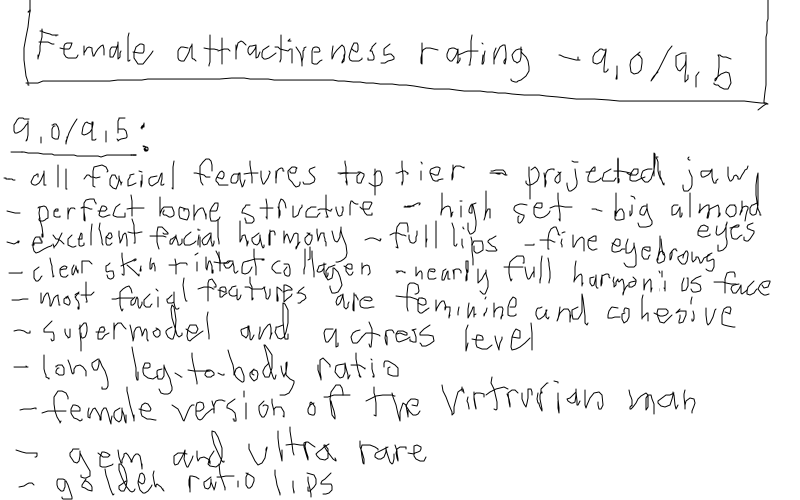 Female attractiveness rating - 9,0/9,5
9,0/9,5:
- all facial features top tier - projected jaw
- perfect bone structure - high set - big almond eyes
- excellent facial harmony - full lips - fine eyebrows
- clear skin + intact collagen - nearly full harmonious face
- most facial features are feminine and cohesive
- supermodel and actress level
- long leg-to-body ratio
- female version of the Virtruvian man
- gem and ultra rare
- golden ratio lips